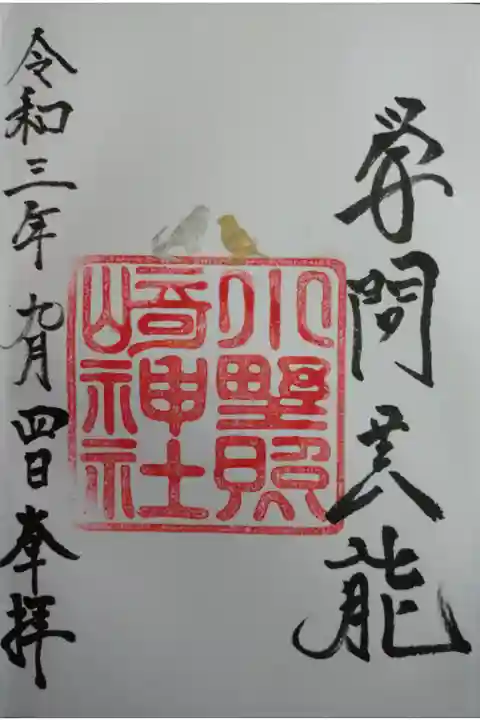 学問芸能
小野照
崎神社
令和三年九月四日奉拝